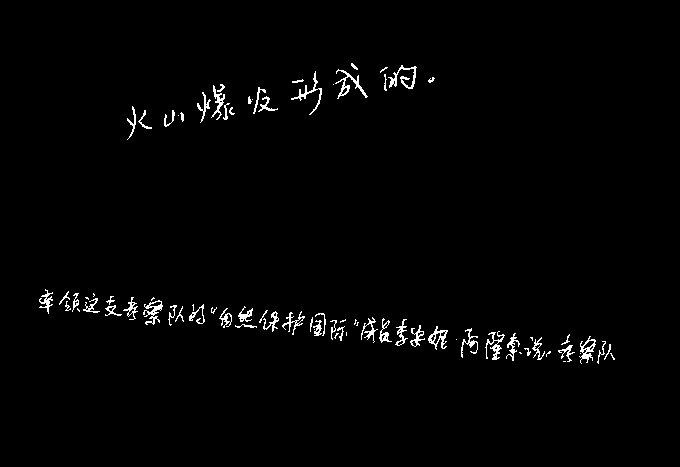 火山爆发形成的。
率领这支考察队的“自然保护国际”成员李安妮·阿隆索说，考察队